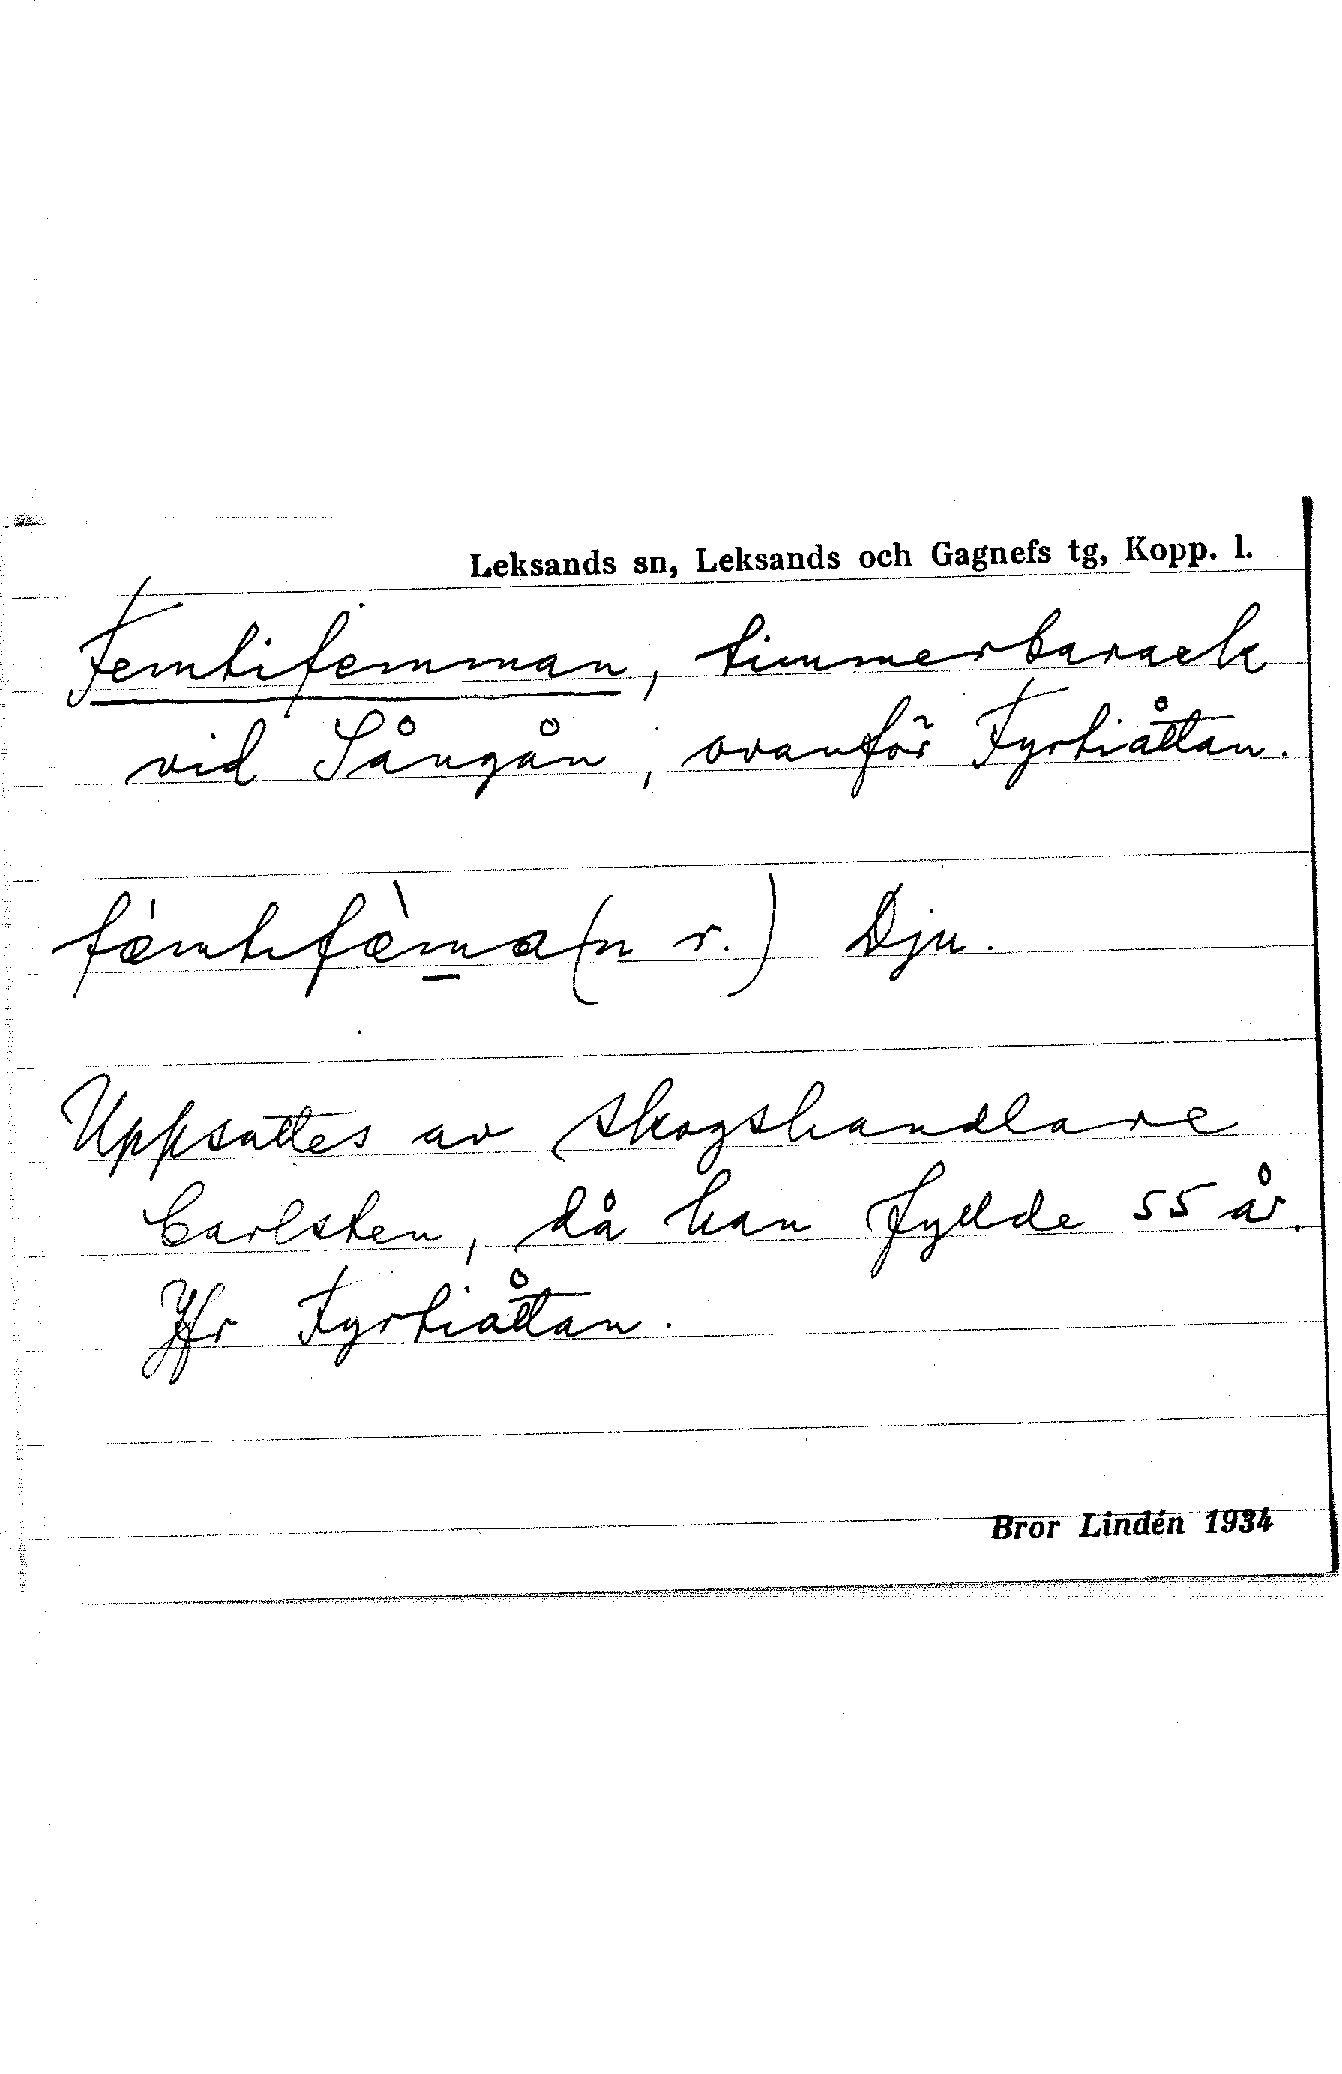 Leksands sn, Leksands och Gagnefs tg, Kopp. l.
Femtifemman, timmerbarack
vid Sångån, ovanför Fyrtiåttan.
fæ̀mtıfæ̀ma(n r.) Dju.
Uppsattes av skogshandlare
Carlsten, då han fyllde 55 år.
Jfr Fyrtiåttan.
Bror Lindén 1934